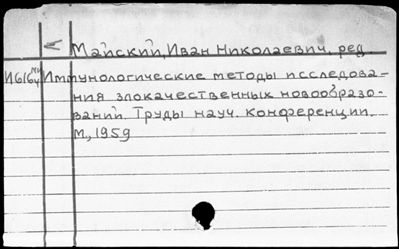 Майский, Иван Николаевич, ред.
И616 Иммунологические методы исследова-
ния злокачественных новообразо-
ваний. Труды науч. конференции.
М, 1959